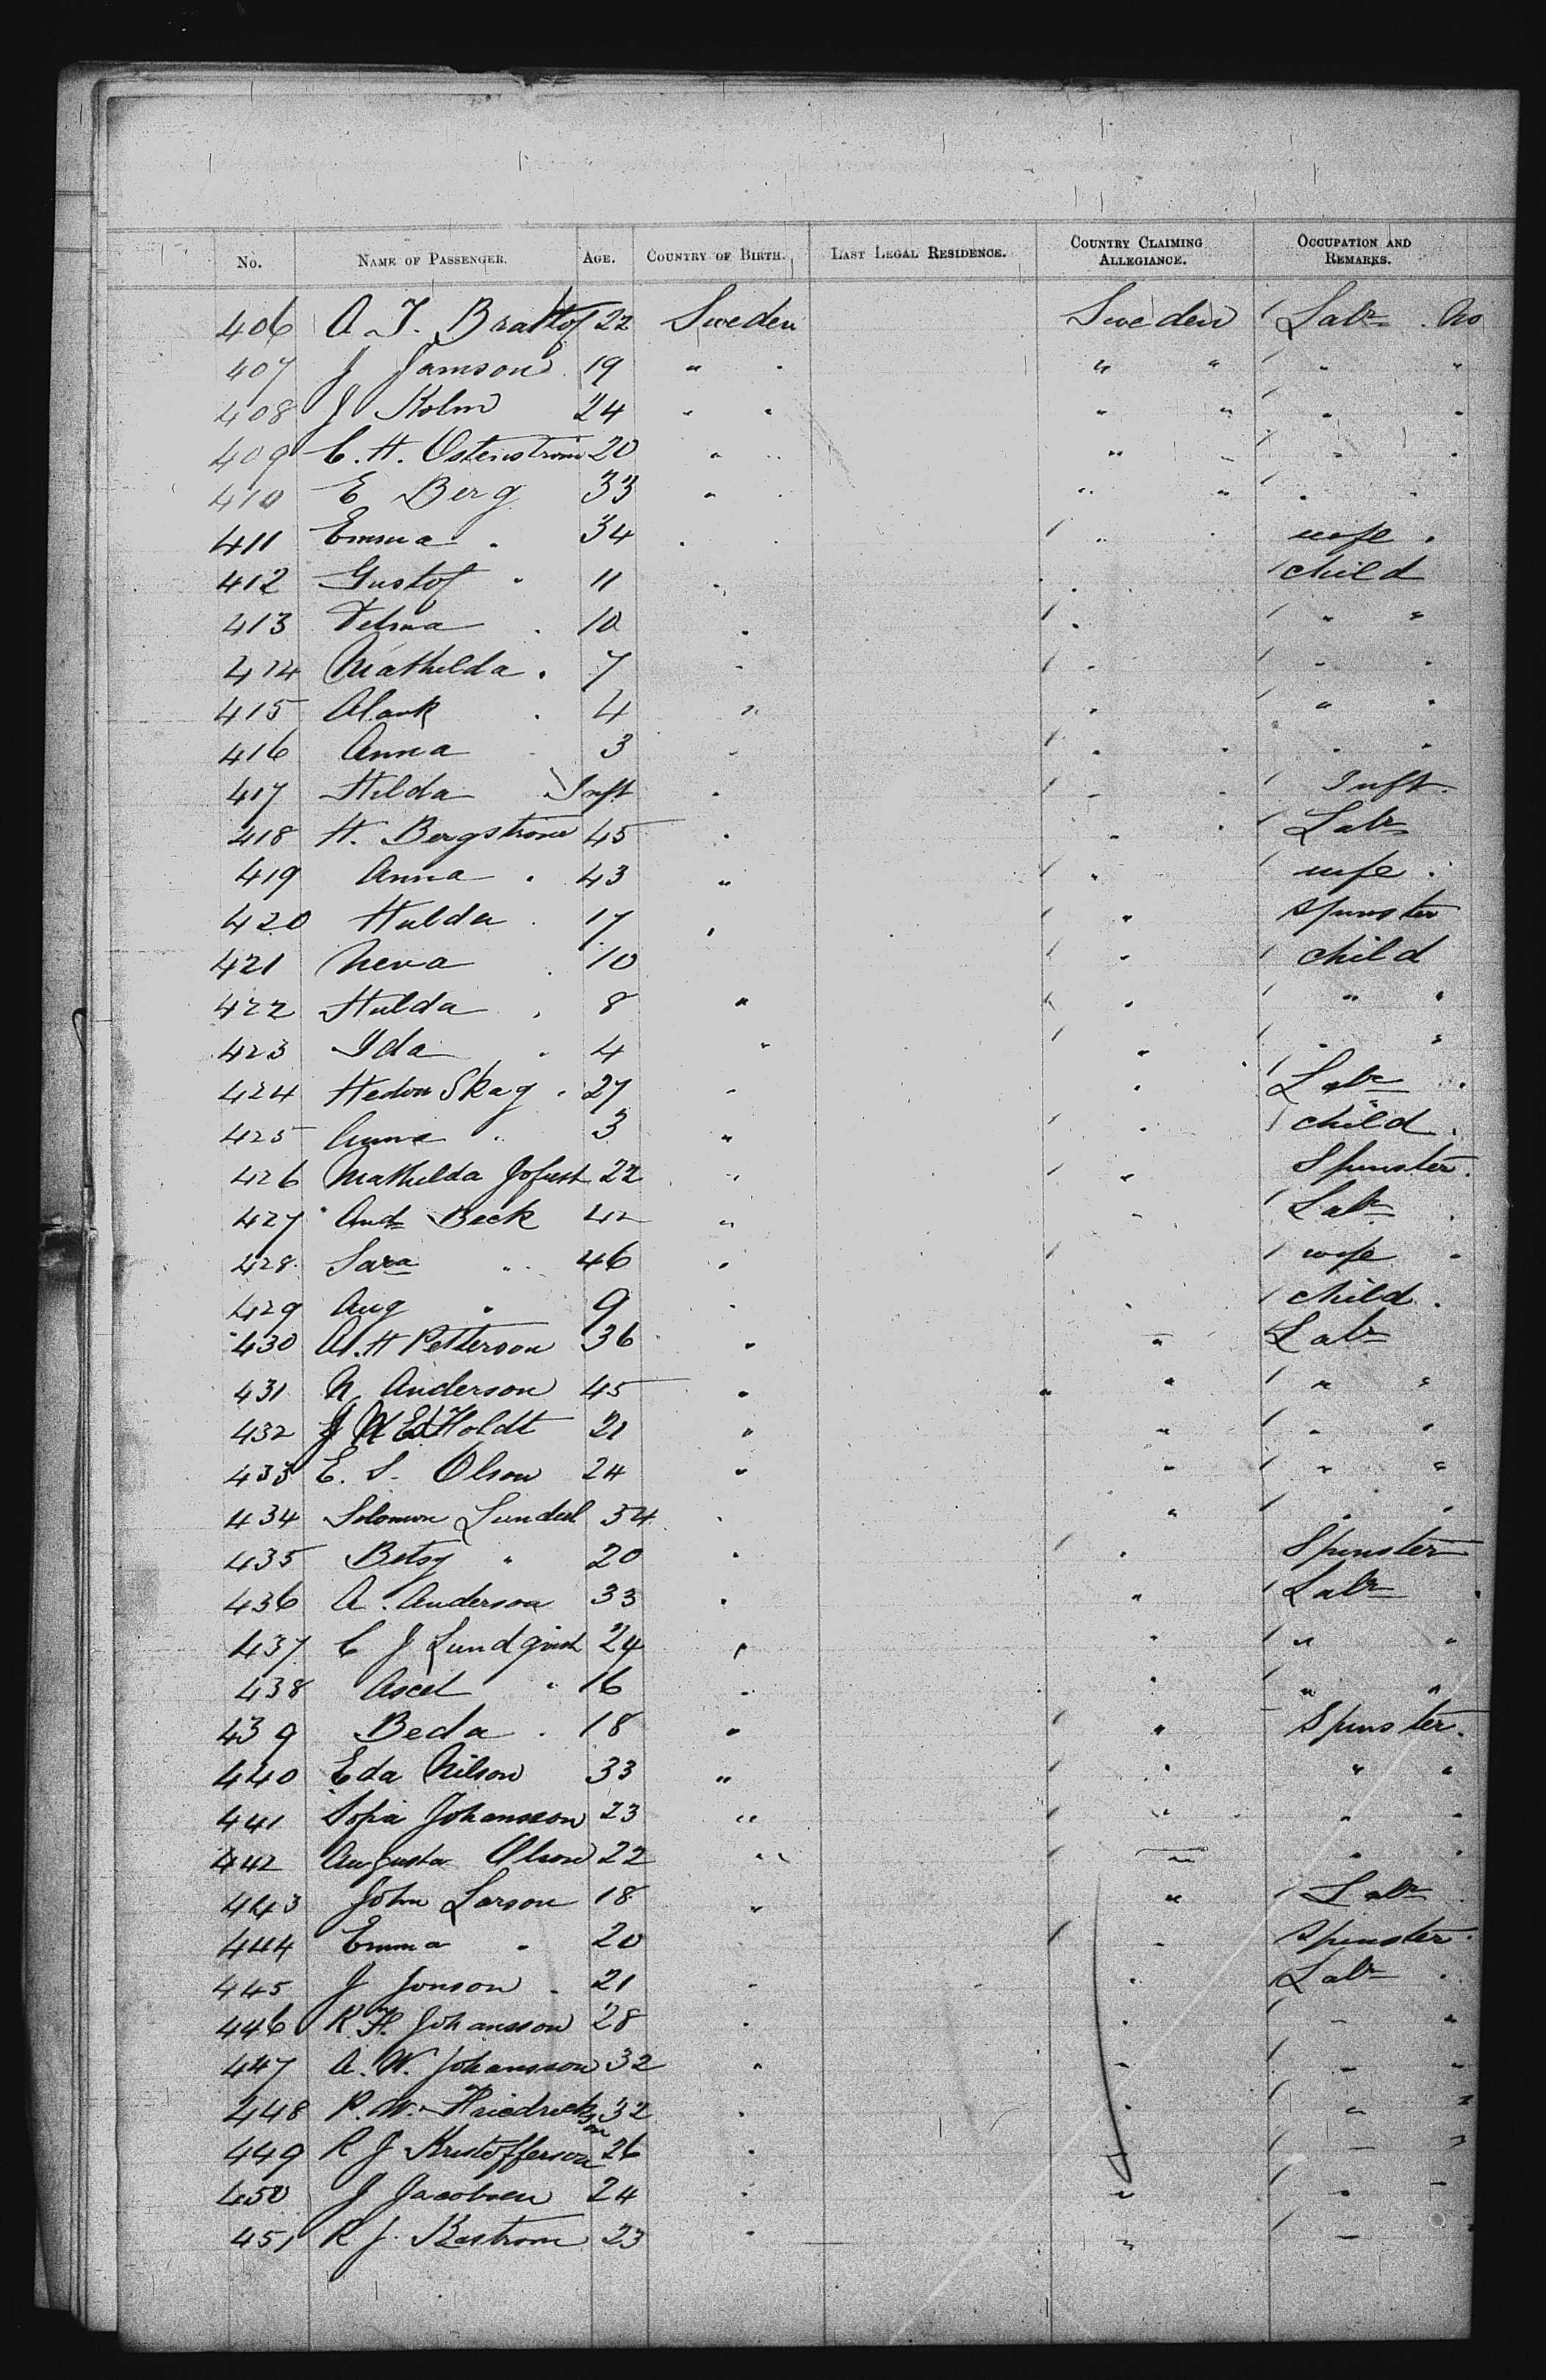 No. NAME OF PASSENGER. AGE. COUNTRY OF BIRTH. LAST LEGAL RESIDENCE. COUNTRY CLAIMING ALLEGIANCE. OCCUPATION AND REMARKS.
406 A. J. 22 Sweden Sweden Labr. No
407 J Jamson 19 " " " " " "
408 J Holm 24 " " " " " "
409 C. H. Ostenstrom 20 " " " " " "
410 E Berg 33 " " " " " "
411 Emma " 34 " " " " wife "
412 Gustof " 11 " " child
413 " 10 " " " "
414 Mathilda " 7 " " " "
415 " 4 " " " "
416 Anna " 3 " " " " "
417 Hilda Inft. " " " Inft.
418 H. Bergstrom 45 " " " Labr
419 Anna " 43 " " wife "
420 Hulda " 17 " " spinster
421 Neva " 10 " child
422 Hulda " 8 " " " "
423 Ida " 4 " " " "
424 Skag " 27 " " Labr "
425 " 3 " " child "
426 Mathilda 22 " " Spinster "
427 And Beck 42 " " Labr "
428 Sara " 46 " wife "
429 Aug " 9 " " child "
430 A. H Petterson 36 " " Labr
431 N Anderson 45 " " " " "
432 J Holdt 21 " " " "
433 E. S. Olson 24 " " " "
434 Solomon 34 " " " "
435 Betsy " 20 " " Spinster
436 A. Anderson 33 " " Labr "
437 C J Lundqvist 24 " " " "
438 Axel " 16 " " " "
439 Beda " 18 " " Spinster "
440 Eda Nilson 33 " " " "
441 Sofia Johansson 23 " " " "
442 Augusta Olson 22 " " " "
443 John Larson 18 " " Labr "
444 Emma " 20 " Spinster "
445 J Jonson 21 " " Labr "
446 R. H. Johansson 28 " " " "
447 A. W. Johansson 32 " " " "
448 P. W. Friedrickson 32 " " " "
449 R J Kristofferson 26 " " " "
450 J Jacobsen 24 " " " "
451 R J. 23 " " "